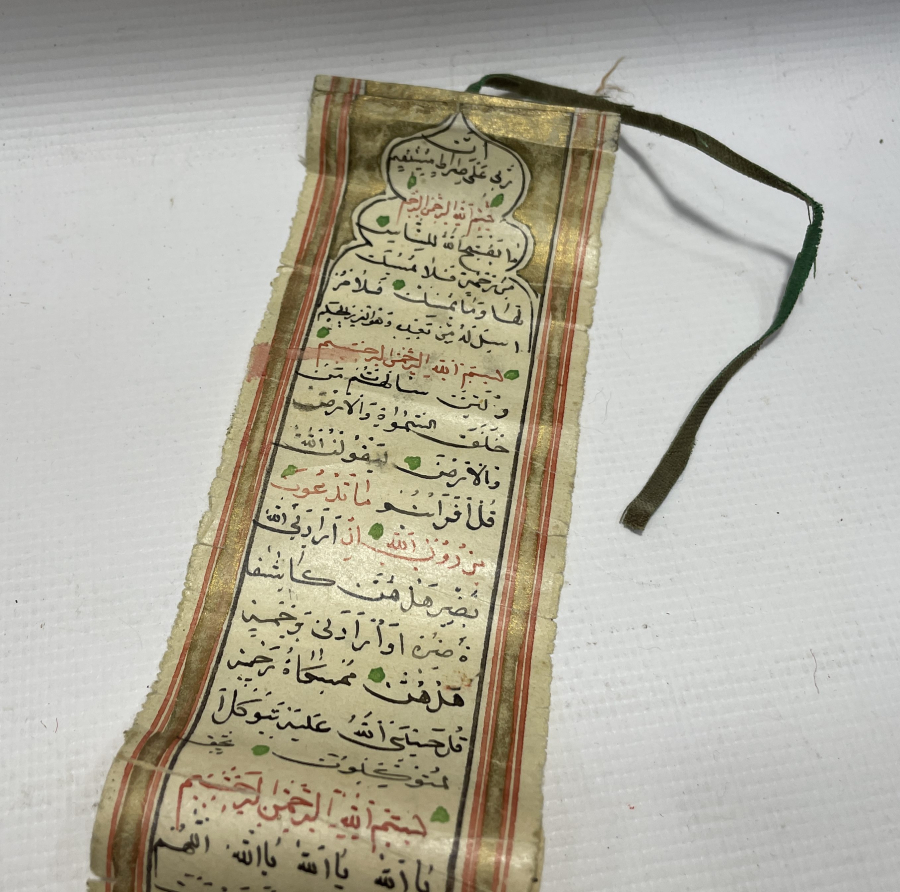 ان
ربى على صراط مستقيم
بسم الله الرحمن الرحيم
ما يفتح الله للناس
من رحمة فلا ممسك
لها وما يمسك فلا مر
سل له من بعده وهو العزيز الحكيم
بسم الله الرحمن الرحيم
ولئن سالتهم من
خلق السموات والارض
والارض ليقولن الله
قل افرايتم ما تدعون
من دون الله ان ارادنى الله
بضر هل هن كاشفا
ة ضره او ارادنى برحمة
هل هن ممسكاة رحمته
قل حسبى الله عليه يتوكل ا
لمتوكلون
بسم الله الرحمن الرحيم
يا الله يا الله يا الله اللهم